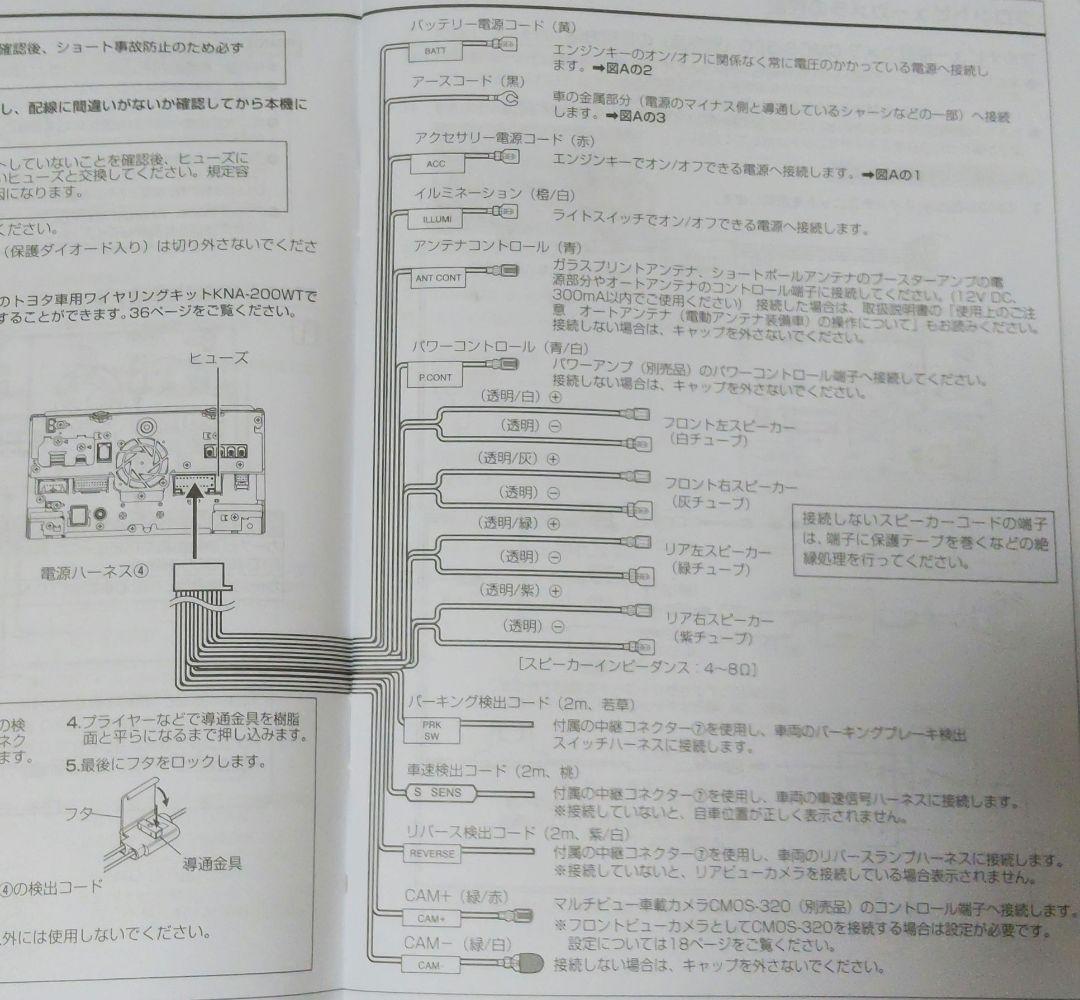 確認後、ショート事故防止のため必ず
し、配線に間違いがないか確認してから本機に
トしていないことを確認後、ヒューズに
いヒューズと交換してください。規定容
因になります。
ください。
（保護ダイオード入り）は切り外さないでくださ
のトヨタ車用ワイヤリングキットKNA-200WTで
することができます。36ページをご覧ください。
ヒューズ
電源ハーネス④
の検
ネク
ます。
4.プライヤーなどで導通金具を樹脂
面と平らになるまで押し込みます。
5.最後にフタをロックします。
フタ
導通金具
④の検出コード
外には使用しないでください。
バッテリー電源コード（黄）
BATT
エンジンキーのオン/オフに関係なく常に電圧のかかっている電源へ接続し
ます。➡図Aの2
アースコード（黒）
車の金属部分（電源のマイナス側と導通しているシャーシなどの一部）へ接続
します。➡図Aの3
アクセサリー電源コード（赤）
ACC
エンジンキーでオン/オフできる電源へ接続します。➡図Aの1
イルミネーション（橙/白）
ILLUMI
ライトスイッチでオン/オフできる電源へ接続します。
アンテナコントロール（青）
ANT CONT
ガラスプリントアンテナ、ショートポールアンテナのブースターアンプの電
源部分やオートアンテナのコントロール端子に接続してください。(12V DC、
300mA以内でご使用ください) 接続した場合は、取扱説明書の「使用上のご注
意 オートアンテナ（電動アンテナ装備車）の操作について」もお読みください。
接続しない場合は、キャップを外さないでください。
パワーコントロール（青/白）
P.CONT
パワーアンプ（別売品）のパワーコントロール端子へ接続してください。
接続しない場合は、キャップを外さないでください。
（透明/白）⊕
（透明）⊖
フロント左スピーカー
（白チューブ）
（透明/灰）⊕
（透明）⊖
フロント右スピーカー
（灰チューブ）
（透明/緑）⊕
（透明）⊖
リア左スピーカー
（緑チューブ）
（透明/紫）⊕
（透明）⊖
リア右スピーカー
（紫チューブ）
［スピーカーインピーダンス：4〜8Ω］
接続しないスピーカーコードの端子
は、端子に保護テープを巻くなどの絶
縁処理を行ってください。
パーキング検出コード（2m、若草）
PRK
SW
付属の中継コネクター⑦を使用し、車両のパーキングブレーキ検出
スイッチハーネスに接続します。
車速検出コード（2m、桃）
S SENS
付属の中継コネクター⑦を使用し、車両の車速信号ハーネスに接続します。
※接続していないと、自車位置が正しく表示されません。
リバース検出コード（2m、紫/白）
REVERSE
付属の中継コネクター⑦を使用し、車両のリバースランプハーネスに接続します。
※接続していないと、リアビューカメラを接続している場合表示されません。
CAM+（緑/赤）
CAM+
マルチビュー車載カメラCMOS-320（別売品）のコントロール端子へ接続します。
※フロントビューカメラとしてCMOS-320を接続する場合は設定が必要です。
設定については18ページをご覧ください。
CAM−（緑/白）
CAM-
接続しない場合は、キャップを外さないでください。